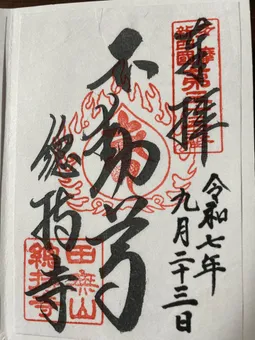 奉拝
不動尊
總持寺
令和七年
九月二十三日
田無山
總持寺